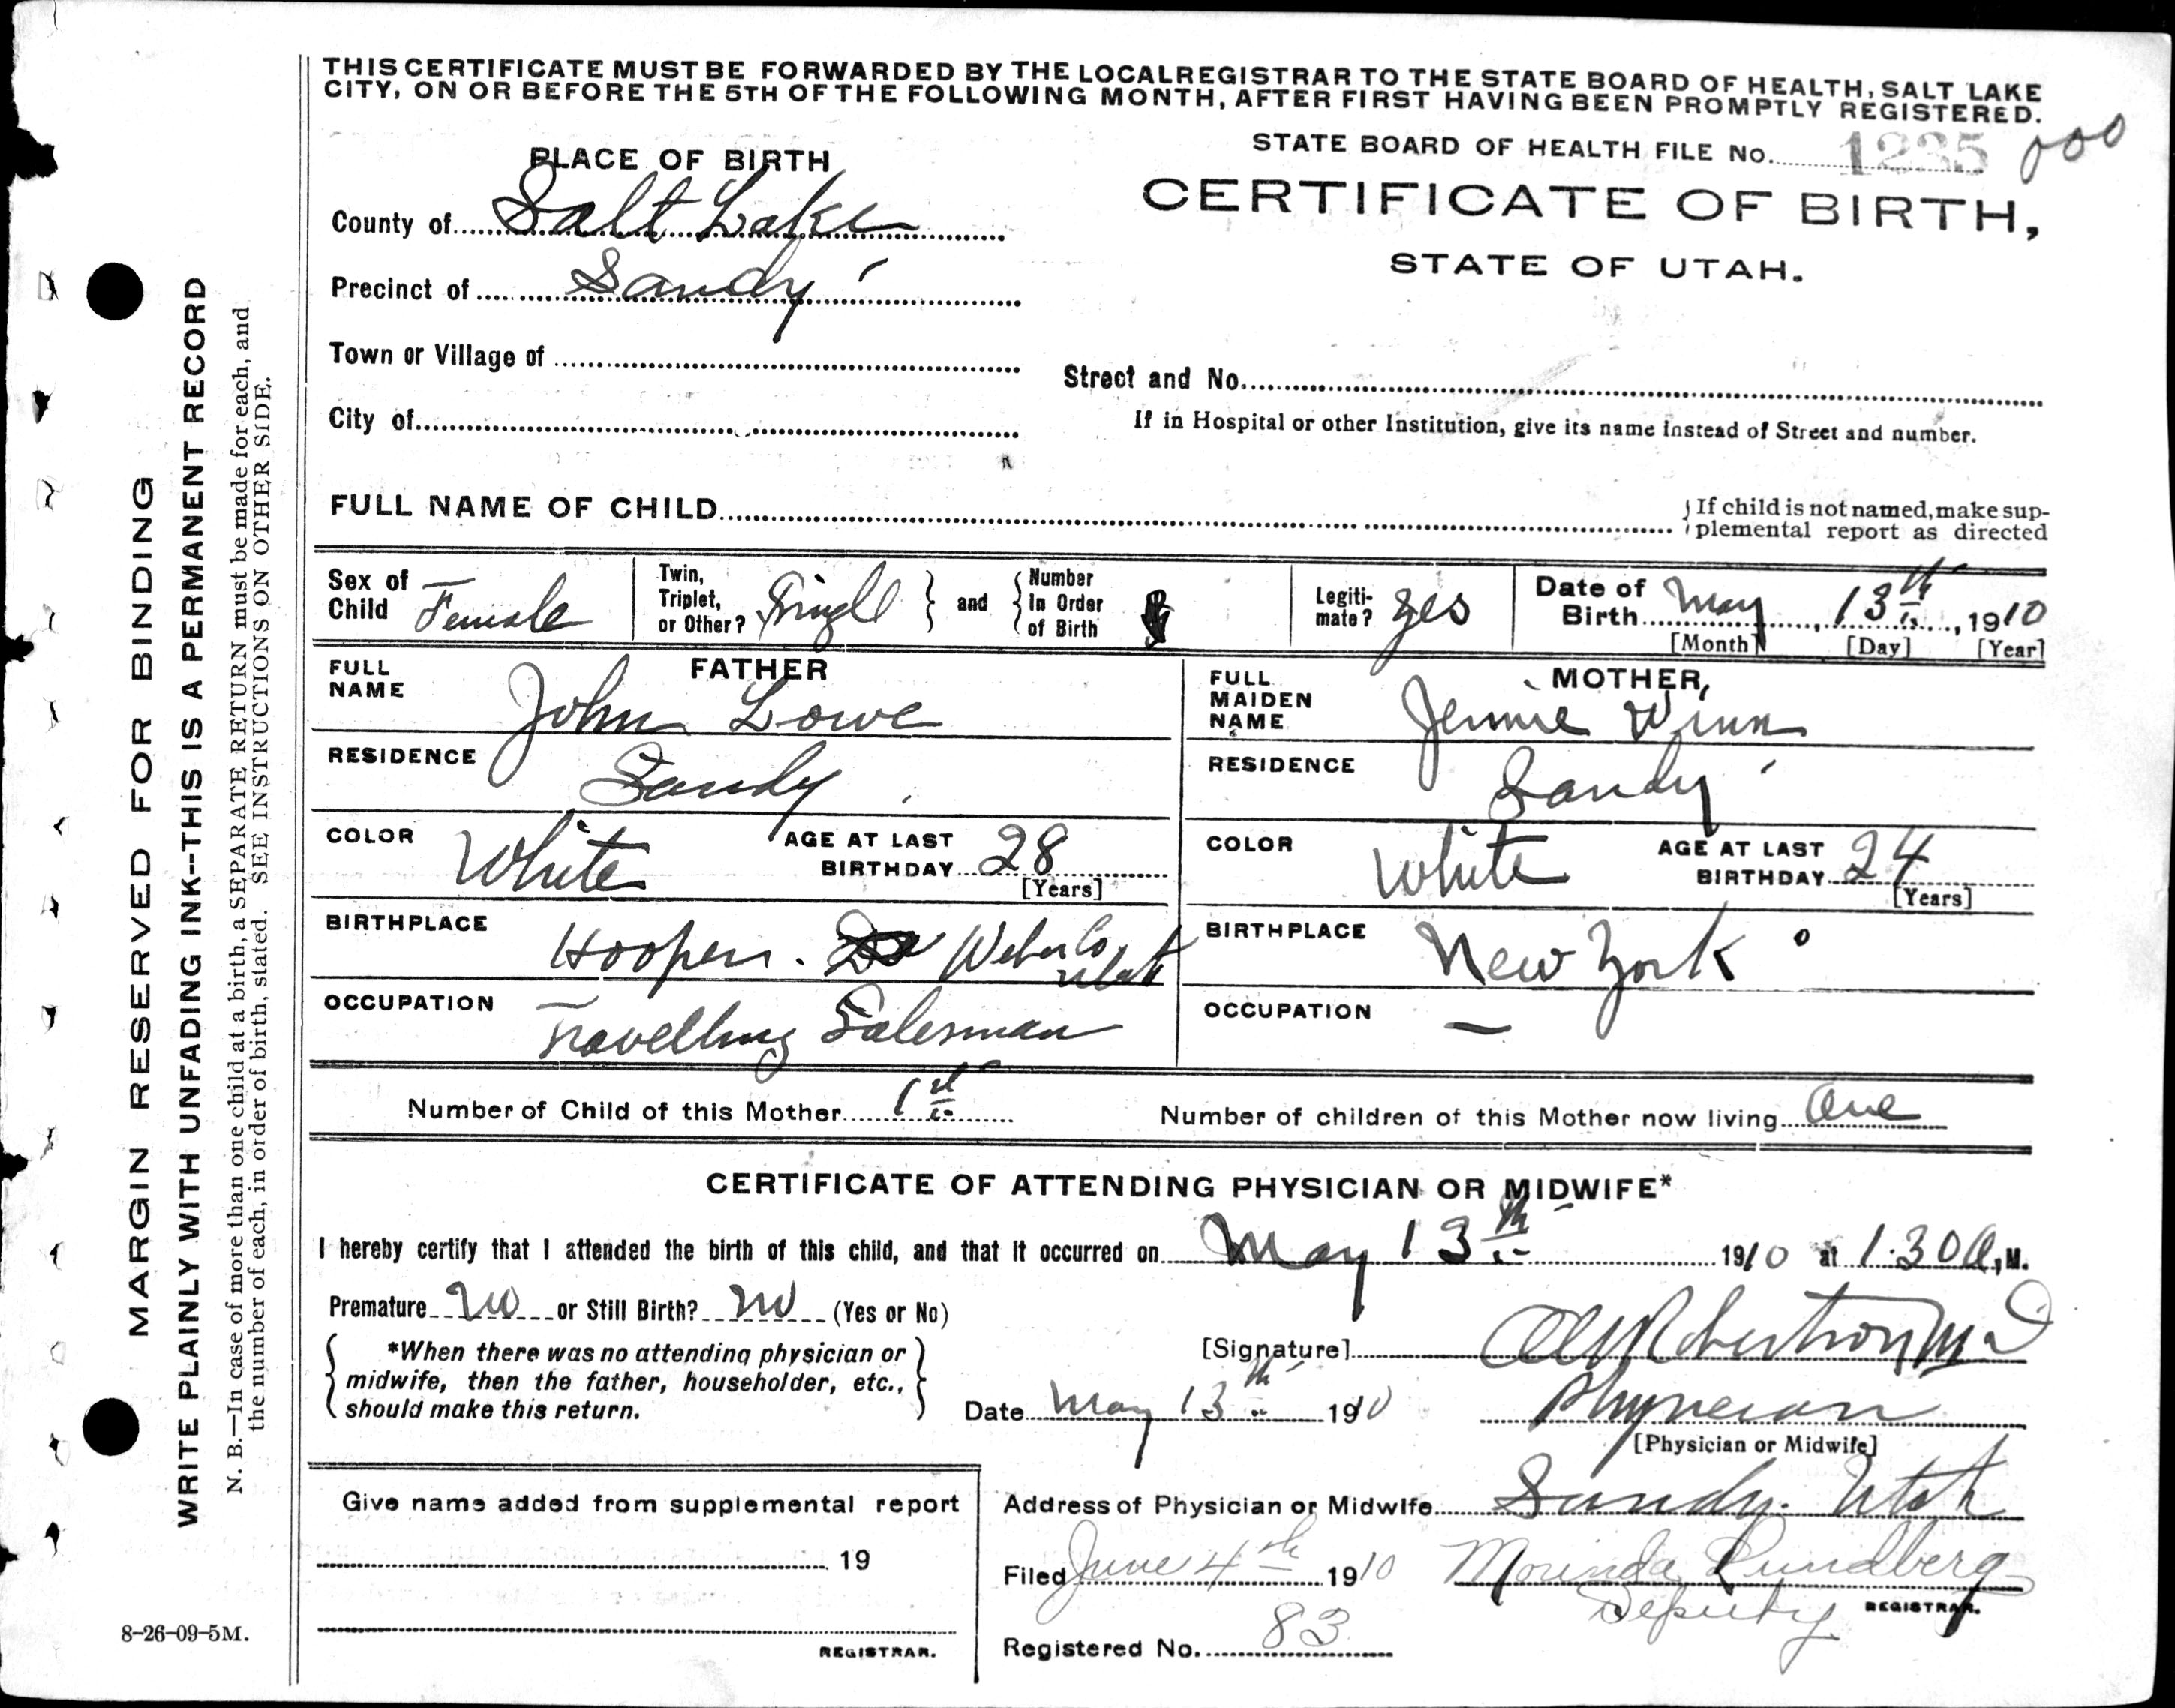 THIS CERTIFICATE MUST BE FORWARDED BY THE LOCAL REGISTRAR TO THE STATE BOARD OF HEALTH, SALT LAKE
CITY, ON OR BEFORE THE 5TH OF THE FOLLOWING MONTH, AFTER FIRST HAVING BEEN PROMPTLY REGISTERED.
STATE BOARD OF HEALTH FILE No. 1235
CERTIFICATE OF BIRTH,
STATE OF UTAH.
PLACE OF BIRTH
County of Salt Lake
Precinct of Sandy
Town or Village of
City of
Street and No.
If in Hospital or other Institution, give its name instead of Street and number.
FULL NAME OF CHILD
If child is not named, make sup-
plemental report as directed
Sex of Child Female
Twin, Triplet, or Other? Single and Number In Order of Birth
Legiti-mate? yes
Date of Birth May 13th, 1910
[Month] [Day] [Year]
FATHER
FULL NAME John Lowe
RESIDENCE Sandy
COLOR White AGE AT LAST BIRTHDAY 28
[Years]
BIRTHPLACE Hooper. Weber Co Utah
OCCUPATION Travelling Salesman
MOTHER
FULL MAIDEN NAME Jennie Winn
RESIDENCE Sandy
COLOR White AGE AT LAST BIRTHDAY 24
[Years]
BIRTHPLACE New York
OCCUPATION —
Number of Child of this Mother 1st Number of children of this Mother now living One
CERTIFICATE OF ATTENDING PHYSICIAN OR MIDWIFE*
I hereby certify that I attended the birth of this child, and that it occurred on May 13th 1910 at 1.30 A, M.
Premature No or Still Birth? No (Yes or No)
*When there was no attending physician or
midwife, then the father, householder, etc.,
should make this return.
[Signature] Robertson MD
Date May 13th 1910 Physician
[Physician or Midwife]
Give name added from supplemental report
19
REGISTRAR.
Address of Physician or Midwife Sandy. Utah
Filed June 4th 1910 Morinda Lundberg
Deputy REGISTRAR.
Registered No. 83
8-26-09-5M.
MARGIN RESERVED FOR BINDING
WRITE PLAINLY WITH UNFADING INK--THIS IS A PERMANENT RECORD
N. B.—In case of more than one child at a birth, a SEPARATE RETURN must be made for each, and
the number of each, in order of birth, stated. SEE INSTRUCTIONS ON OTHER SIDE.